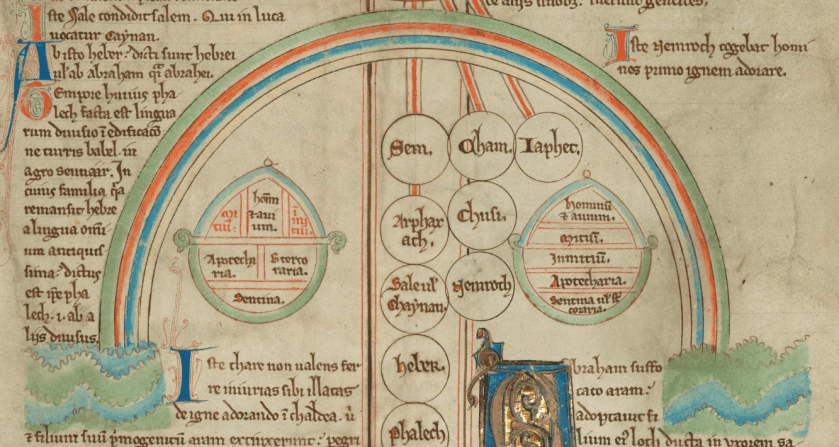 iste Sale condidit salem. Qui in luca
uocatur Caynan.
Ab isto heber: dicti sunt hebrei
ul' ab abraham qͣ abrahei.
Tempore huius pha
lech facta est lingua
rum diuisio ī edificacō
ne turris babel. in
agro sennair. In
cuius familia qͣ
remansit hebre
a lingua
um antiquis
sima: dictus
est ipe pha
lech. i. ab a
liis diuisus.
Iste Nemroch cogebat homi
nes primo ignem adorare.
Sem. Cham. Iaphet.
Arphax
ath.
Chusi.
Sale ul'
Chaynan.
Nemroch
heber.
Phalech
hoīm
& aui
um.
miti
um.
īmi
tiū.
Apotecha
ria.
Sterco
raria.
Sentina.
hominū
& auium.
mitiū.
Inmitiū.
Apotecharia.
Sentina ul' st̄
coraria.
Iste thare non ualens fer
re iniurias sibi illatas
de igne adorando ī chaldea. ū
& filium suū pͥmogenitū aram extinxerunt: pegri
Abraham suffo
cato aram:
adoptauit fi
lium eͥ loth ducta in uxorem sa-